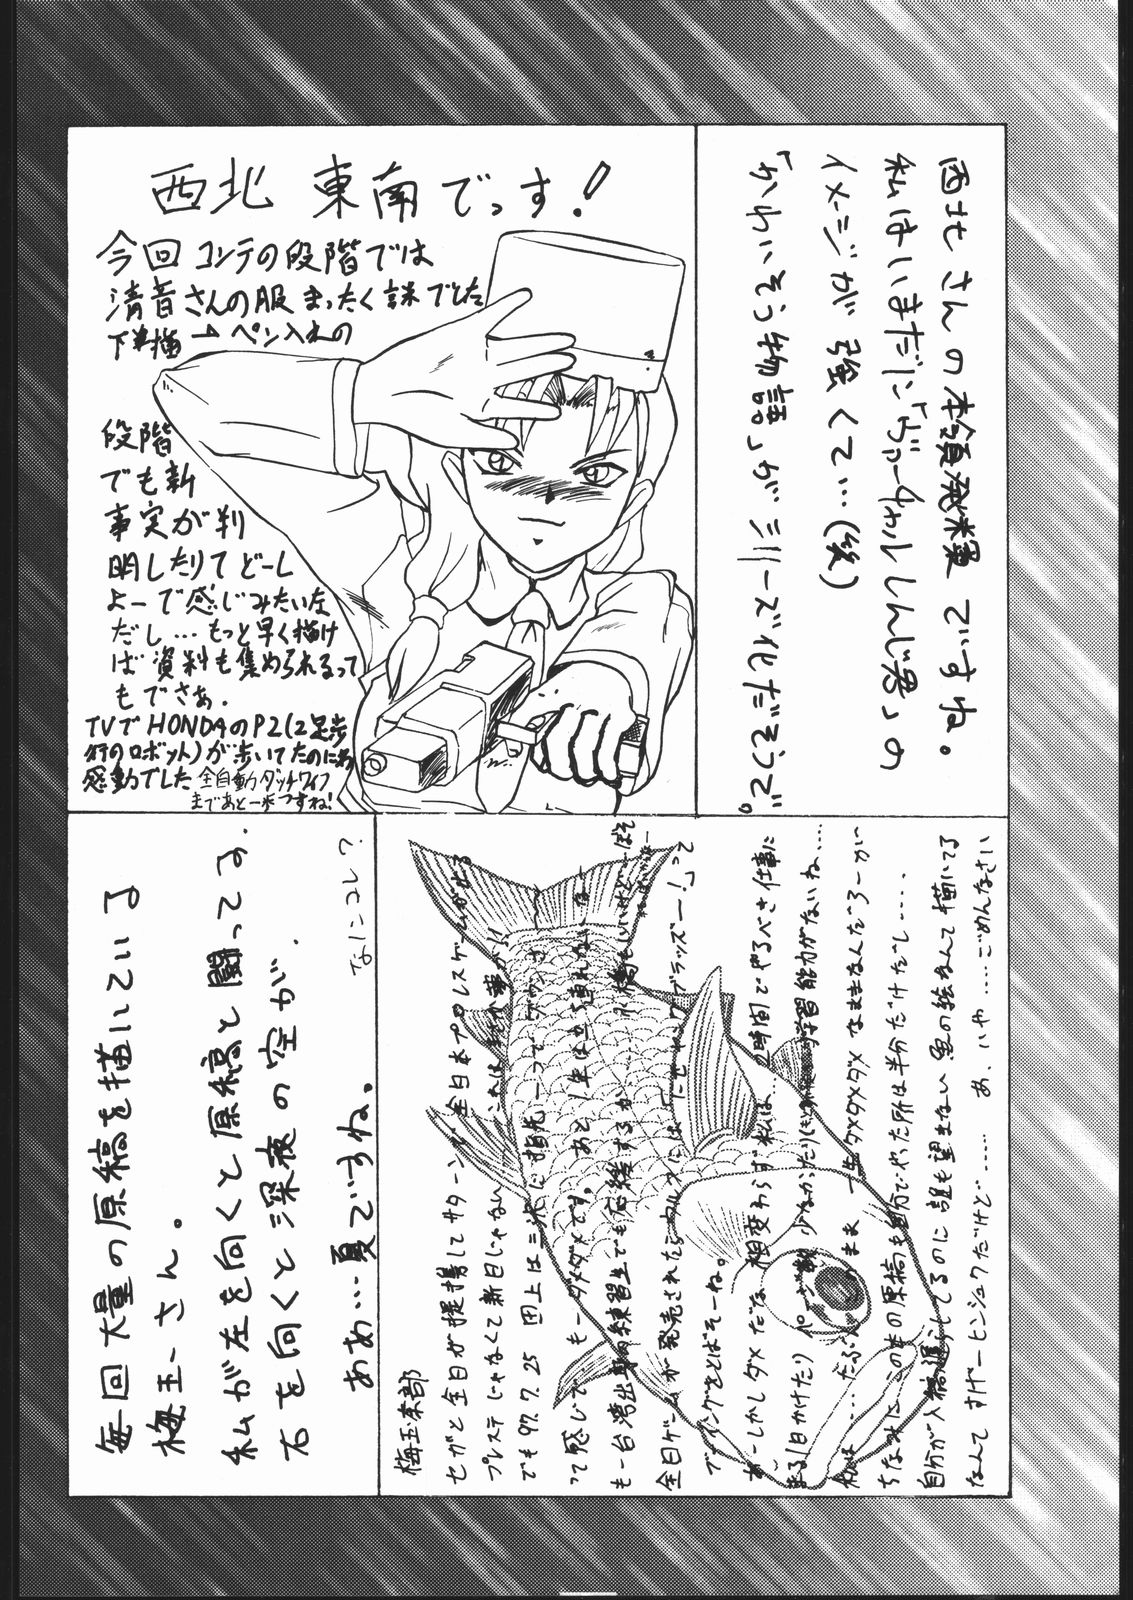 西北 東南でっす!
今回 コンテの段階では
清音さんの服 まったく謎でした
下描 → ペン入れの
段階
でも新
事実が判
明したりて どーし
よーで感じみたいな
だし…もっと早く描け
ば 資料も集められるって
もでさぁ.
TVでHONDAのP2(2足歩
行のロボット)が歩いてたのには
感動でした 全自動ダッチワイフ
まであと一歩っすね!
西北さんの本領発揮ですね。
私はいまだに「ヴァーチャルしんじ君」の
イメージが強くて…(笑)
「かわいそう物語」がシリーズ化だそうで。
毎回大量の原稿を描いている
梅玉さん。
私が左を向くと原稿と闘ってる.
右を向くと深夜の空が.
ああ…夏ですね。
なにコレ?
梅玉奈部
セガと全日が提携してサターンで全日本プロレスゲームが出る
プレステじゃなくて新日じゃない
でも97.7.25 田上は三沢に指先一つでダウンさ
って感じで も一ダメダメです。あと1年は立ち直れないな
も一台湾出身の練習生でも応援するか
全日ゲームが発売されたら
ブッキングをとばそーね。
あーしかしダメだな 相変わらず私は…2時間でやるべき仕事に
まる1日かけたり 学習能力がないね…
私は……たぶんこのまま一生ダメダメダメなままなんだろーが
ちなみにこのもの原稿も自力でやった所は半分だけだし…
自分が入稿遅らしてるのに誰も望まない魚の絵なんて描いてる
なんてすげーヒンシュクだけど…… あ、いや……ごめんなさい